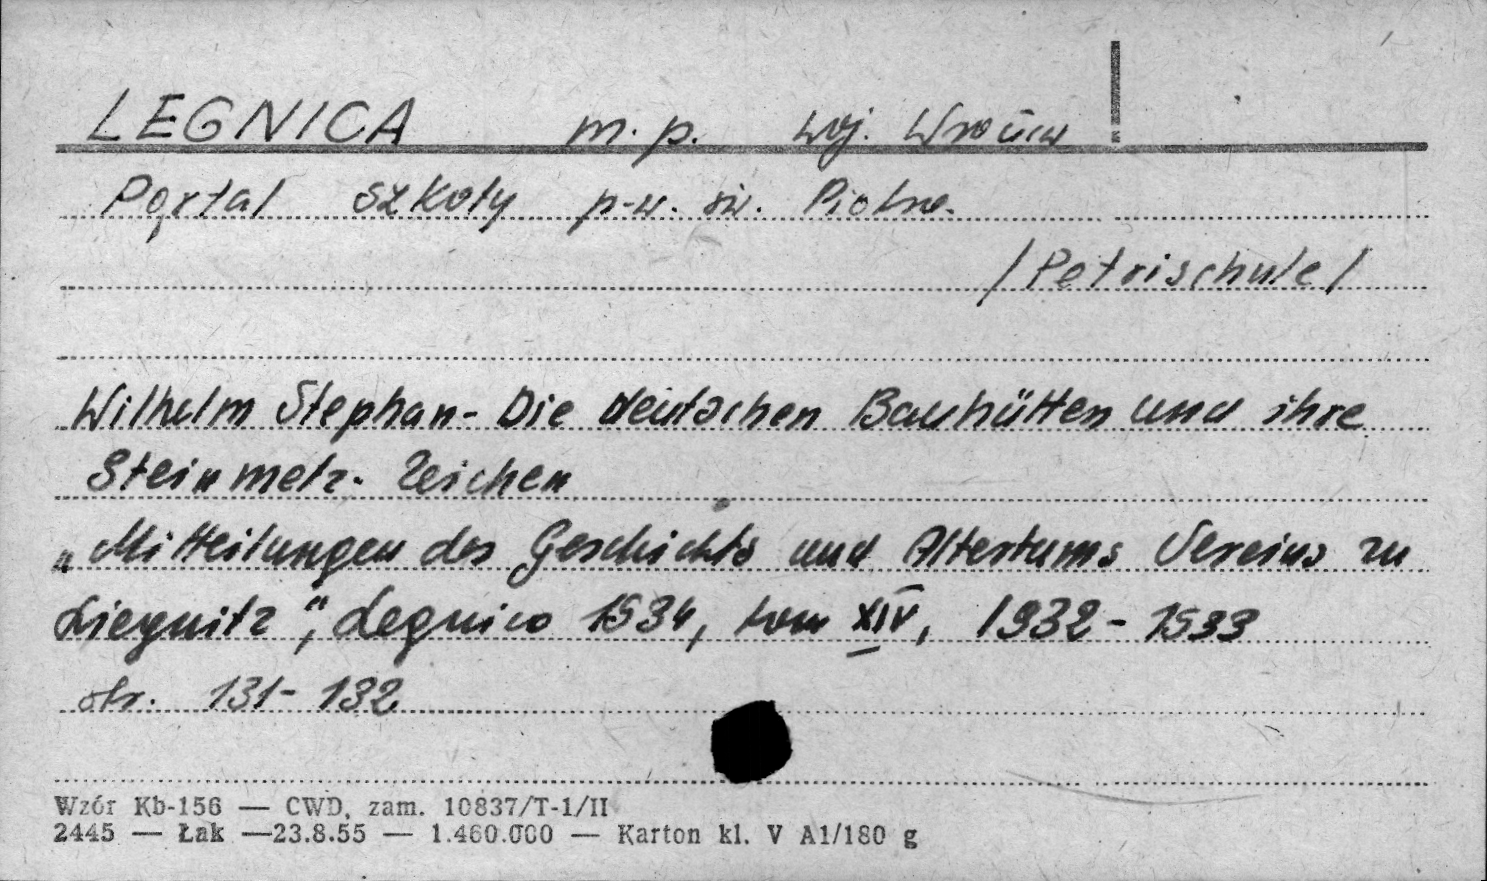 LEGNICA m. p. woj. Wrocław
Portal szkoły p-w. św. Piotra.
/Petrischule/
Wilhelm Stephan - Die deutschen Bauhütten und ihre
Steinmetz-Zeichen
„Mitteilungen des Geschichts und Altertums Vereins zu
Liegnitz", Legnica 1934, tom XIV, 1932-1933
str. 131-132
Wzór Kb-156 — CWD, zam. 10837/T-1/II
2445 — Łak —23.8.55 — 1.460.000 — Karton kl. V A1/180 g